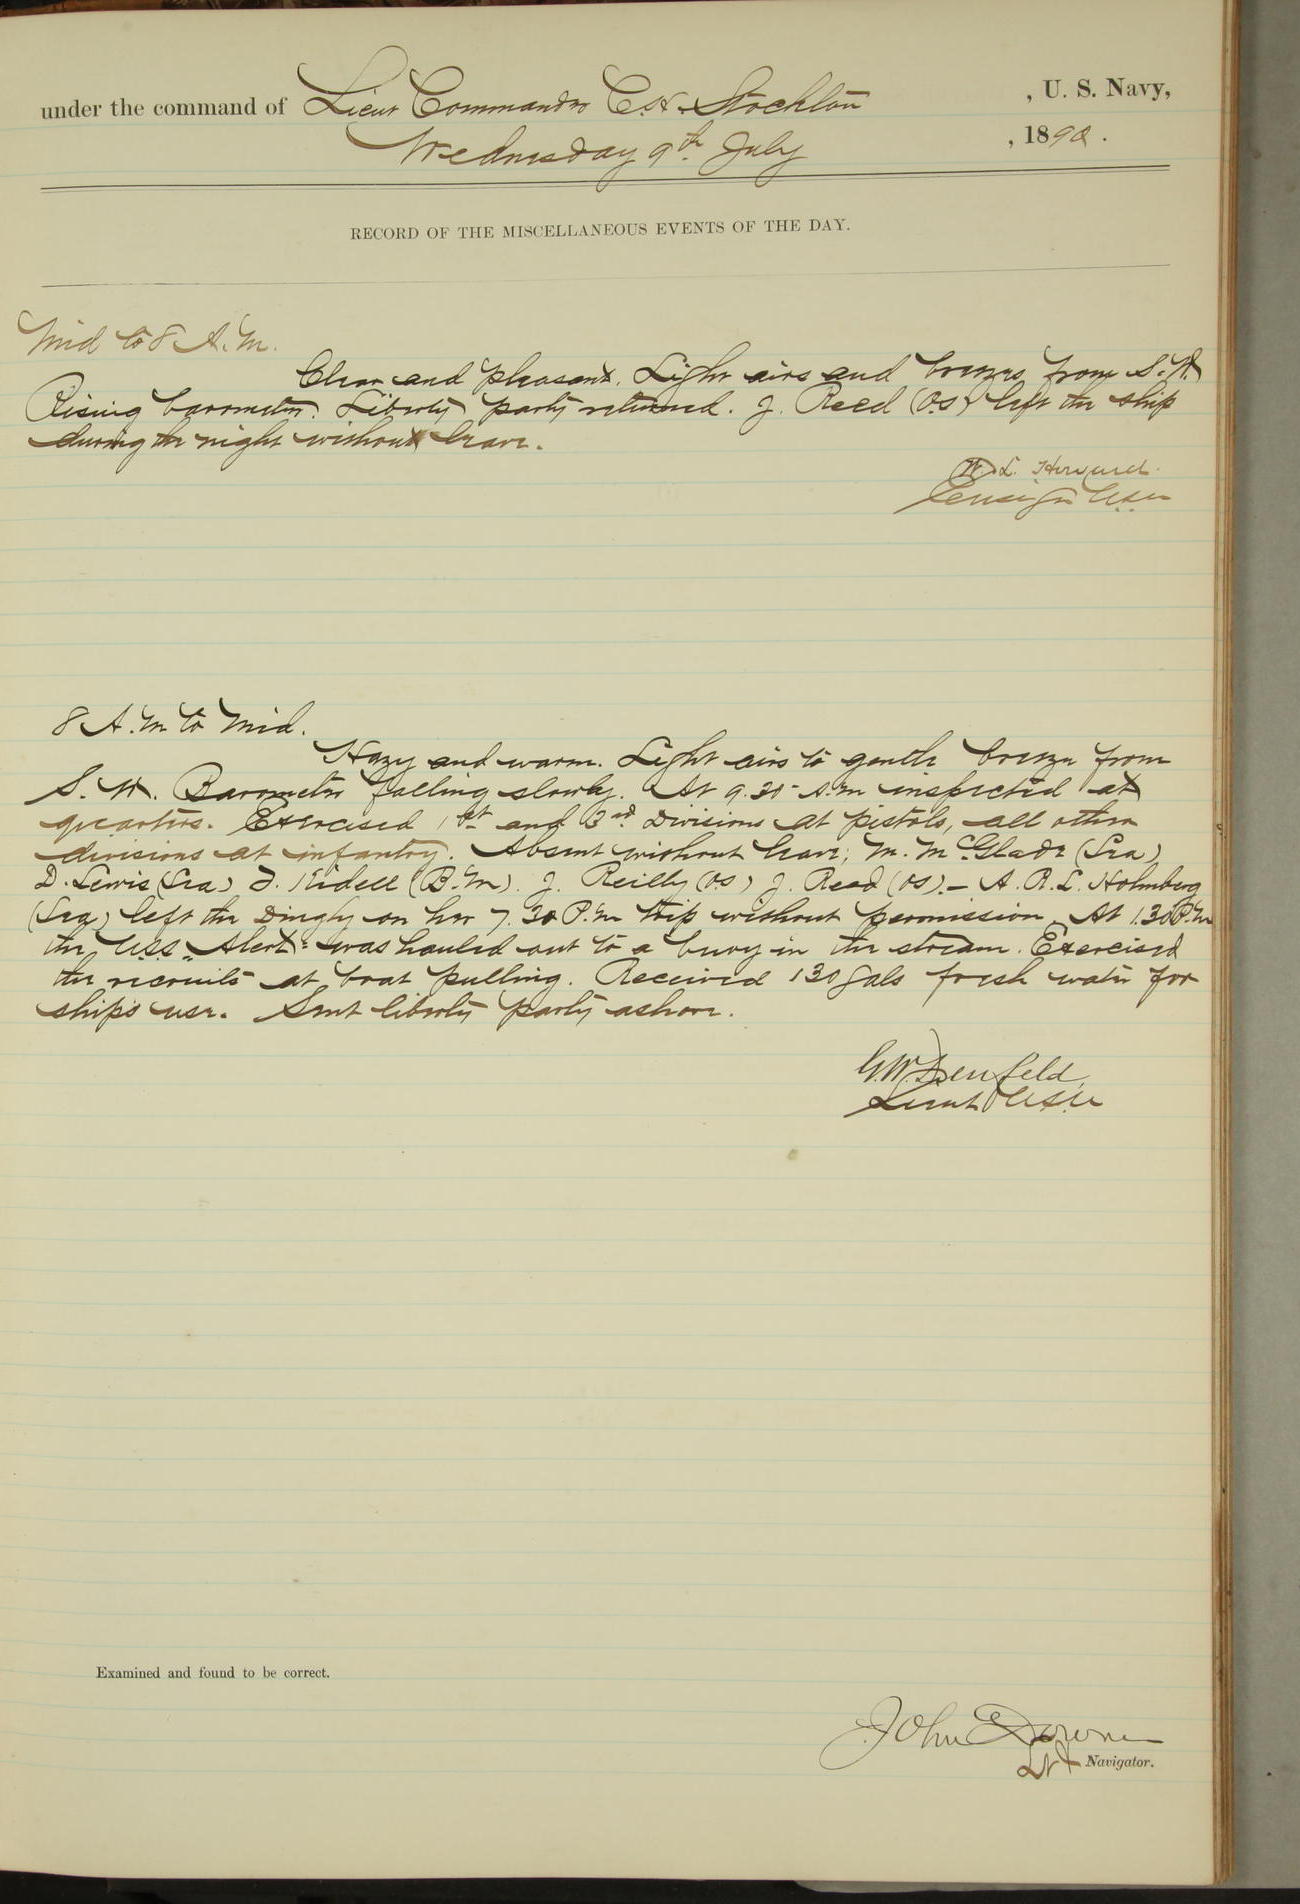 under the command of Lieut Commander C.H. Stockton , U. S. Navy,
Wednesday 9th July , 1890.
RECORD OF THE MISCELLANEOUS EVENTS OF THE DAY.
Mid to 8 A.M.
Clear and pleasant. Light airs and breezes from S.W.
Rising barometer. Liberty party returned. J. Reed (O.S) left the ship
during the night without leave.
W. L. Howard.
Ensign U.S.N.
8 A.M to Mid.
Hazy and warm. Light airs to gentle breeze from
S. W. Barometer falling slowly. At 9.30 A.M inspected at
quarters. Exercised 1st and 3rd Divisions at pistols, all other
divisions at infantry. Absent without leave, M. McGlade (Sea)
D. Lewis (Sea) J. Kidell (B.M). J. Reilly (O.S) J. Read (OS). — A. R. L. Holmberg
(Sea) left the Dinghy on her 7.30 P.M trip without permission. At 1.30 P.M
the U.S.S. "Alert" was hauled out to a buoy in the stream. Exercised
the recruits at boat pulling. Received 130 gals fresh water for
ship's use. Sent liberty party ashore.
G.W. Denfeld,
Lieut U.S.N
Examined and found to be correct.
John C Downe
Lt & Navigator.